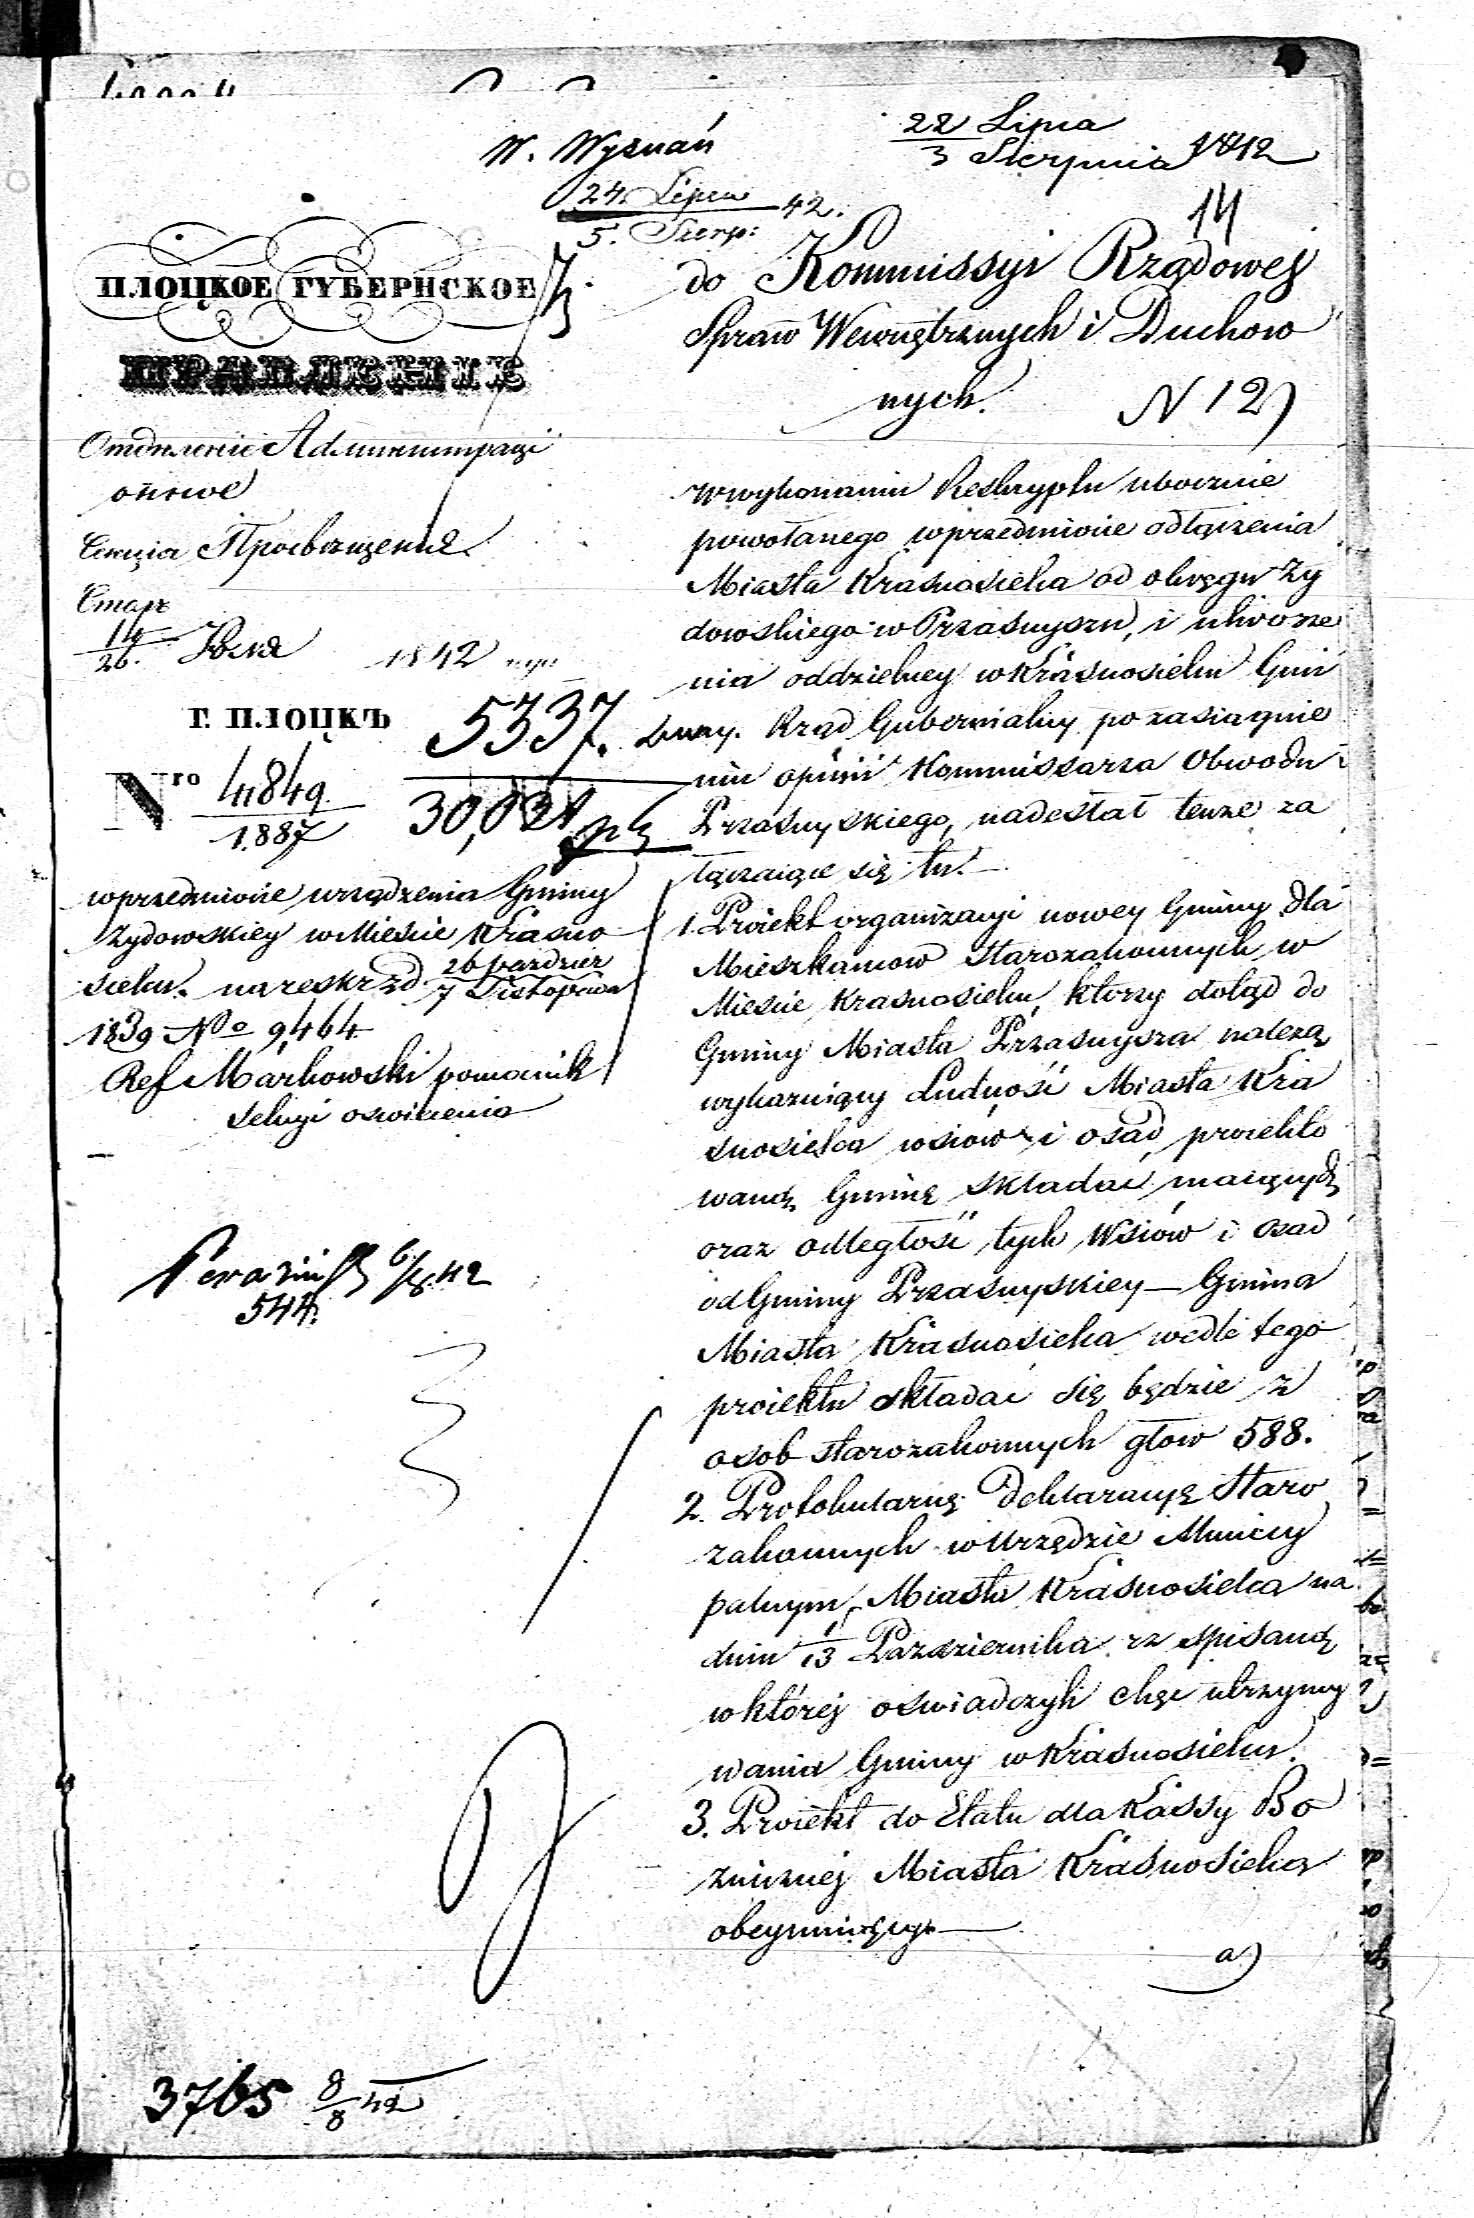 W. Wyznań
22 Lipca
3 Sierpnia 1842
24 Lipca
5. Sierp: 42.
14
ПЛОЦКОЕ ГУБЕРНСКОЕ
ПРАВЛЕНІЕ
Отдѣленіе Администраци
онное
Секція Просвѣщенія
14
26. Іюля 1842 года
Г. ПЛОЦКЪ
Nro 41849
1.887
5337.
30,031
wprzedmiocie urządzenia Gminy
Żydowskiey w Mieście Krasno
sielcu. na reskr zd 26 Paździer
7 Listopada
1839 No 9,464
Ref Markowski pomocnik
Sekcyi oswiecenia
6/8 42
544.
do Kommissyi Rządowej
Spraw Wewnętrznych i Duchow
nych. N 12)
W wykonaniu Reskryptu ubocznie
powołanego wprzedmiocie odłączenia
Miasta Krasnosielca od okręgu Ży
dowskiego w Przasnyszu, i utworze
nia oddzielney w Krasnosielcu Gmi
ny. Rząd Gubernialny po zasiągnie
niu opinii Kommissarza Obwodu
Przasnyskiego, nadesłał tenże za
łączaiące się tu.
1. Proiekt organizacyi nowey Gminy dla
Mieszkancow Starozakonnych w
Miescie Krasnosielcu, którzy dotąd do
Gminy Miasta Przasnysza należą
wykazuiący Ludność Miasta Kra
snosielca wsiow i osad proiekto
waną Gminę składać maiących
oraz odległość tych Wsiów i osad
od Gminy Przasnyskiey — Gmina
Miasta Krasnosielca wedle tego
proiektu składać się będzie z
osob starozakonnych głow 588.
2. Protokularną Deklaracyę Staro
zakonnych w Urzędzie Municy
palnym Miasta Krasnosielca na
dniu 1/13 Pazdziernika rz spisaną
w której oswiadczyli chęć utrzymy
wania Gminy w Krasnosielcu.
3. Proiekt do Etatu dla Kassy Bo
zniczney Miasta Krasnosielca
obeymuiący
a)
3765 8/8 42